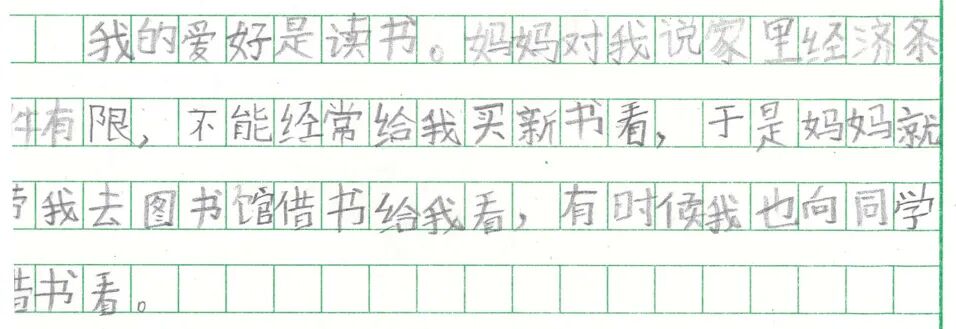 我的爱好是读书。妈妈对我说家里经济条
件有限，不能经常给我买新书看，于是妈妈就
带我去图书馆借书给我看，有时候我也向同学
借书看。